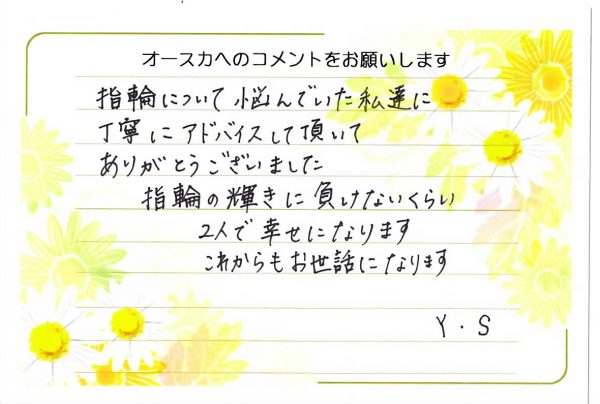 オースカへのコメントをお願いします
指輪について悩んでいた私達に
丁寧にアドバイスして頂いて
ありがとうございました
指輪の輝きに負けないくらい
2人で幸せになります
これからもお世話になります
Y・S